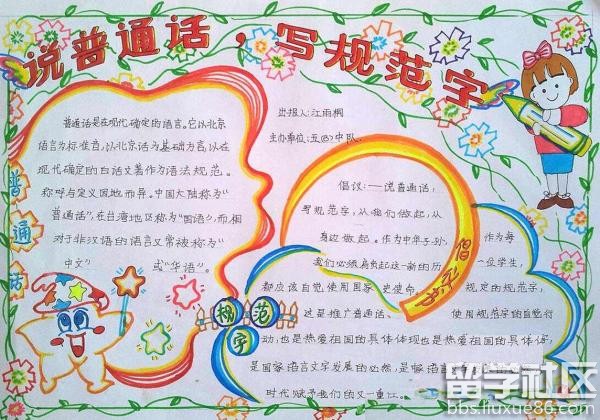 说普通话，写规范字
出报人:江雨桐
主办单位:五(3)中队
普通话是在现代确定的语言。它以北京
语言为标准音，以北京话为基础方言，以在
现代确定的白话文著作为语法规范。
称呼与定义因地而异。中国大陆称为“
普通话”，在台湾地区称为“国语”，而相
对于非汉语的语言又常被称为“
中文” 或“华语”。
普通话
规范字
倡议书
倡议:——说普通话，
写规范字，从我们做起，从
身边做起。作为中华子孙，作为每
我们必须肩负起这一新的历 一位学生，
都应该自觉使用国家 史使命。规定的规范字，
这是推广普通话、 使用规范字的自觉行
动，也是热爱祖国的具体体现也是热爱祖国的具体体
是国家语言文字发展的必然，是
时代赋予我们的又一重任。
留学社区
bbs.liuxue86.com